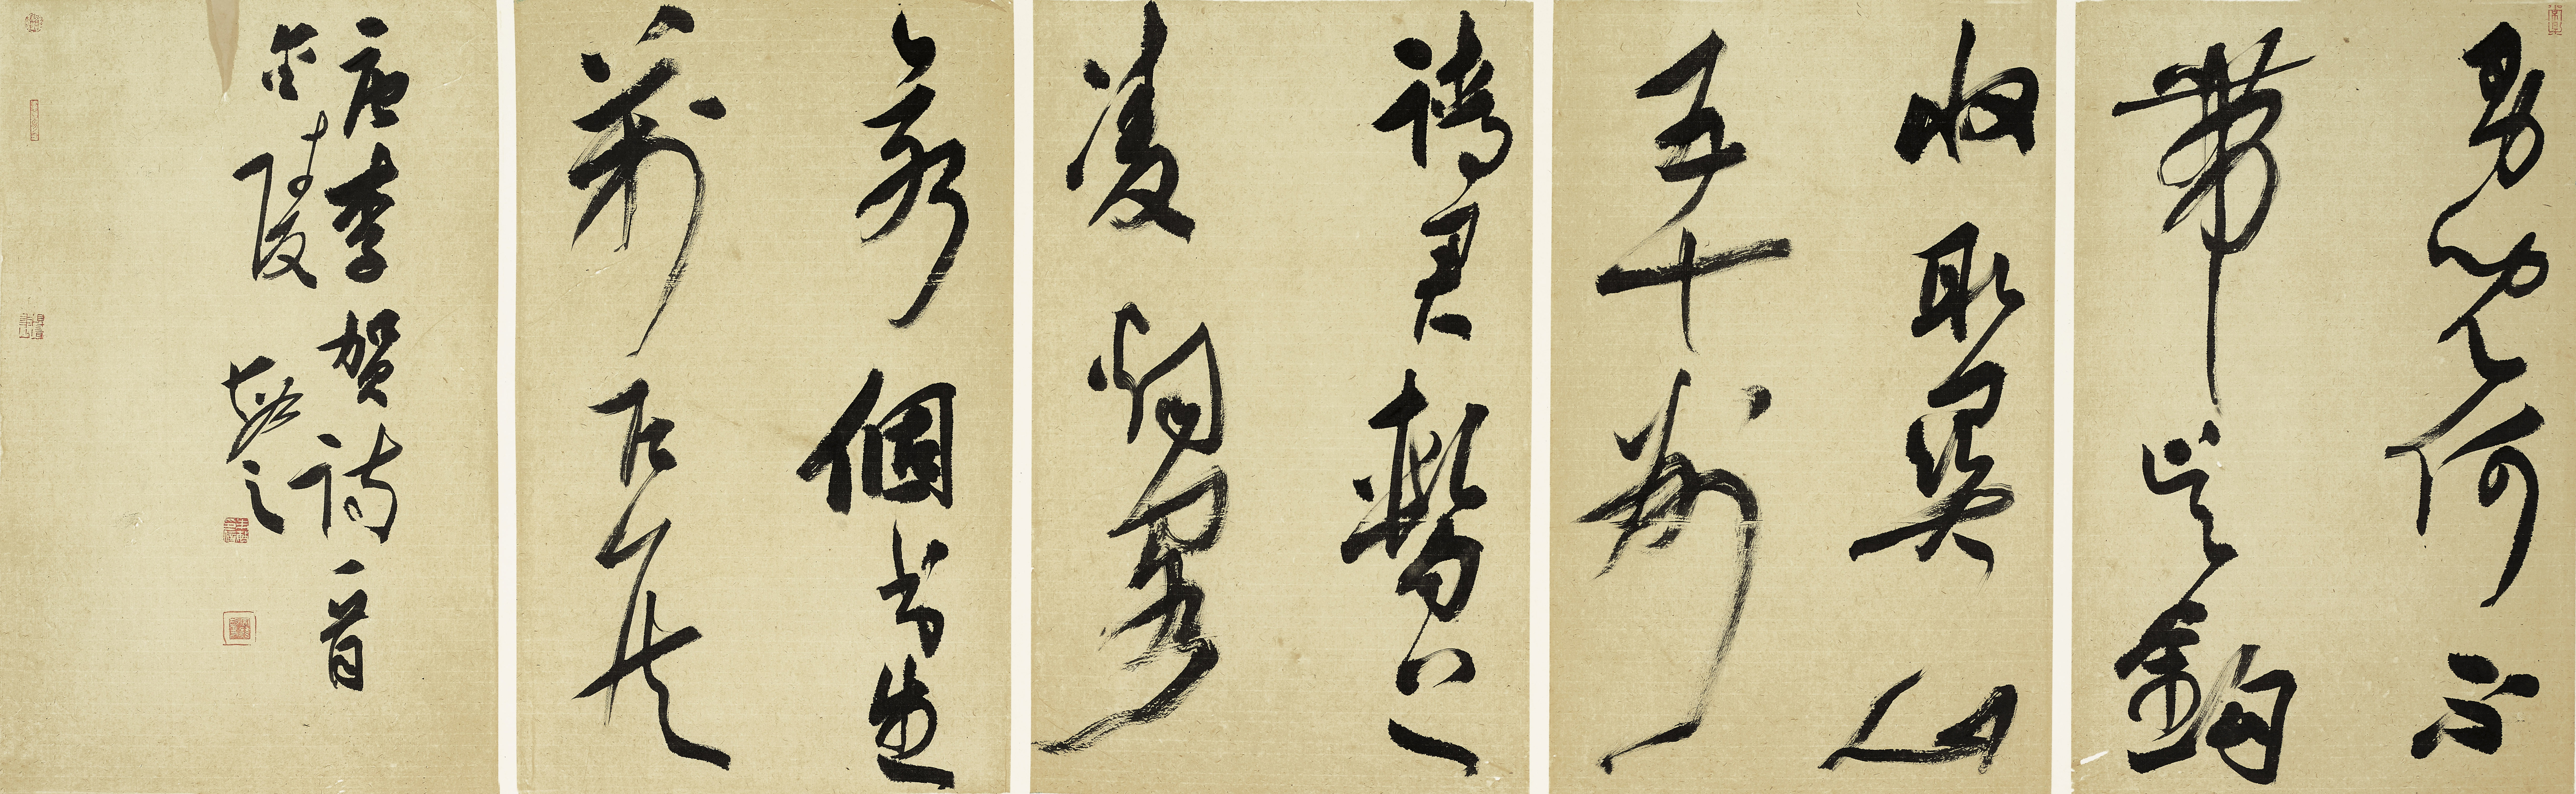 男兒何不
帶吳鉤
收取關山
五十州
請君暫上
凌烟閣
若個書生
萬戶侯
唐李賀詩一首
金陵